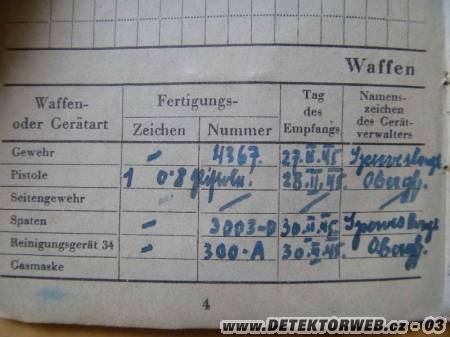 Waffen
Waffen- oder Gerätart
Fertigungs-
Zeichen
Nummer
Tag des Empfangs
Namens-zeichen des Gerät-verwalters
Gewehr 4367. 27.II.45.
Pistole 1 0·8 28.II.45. Obergf.
Seitengewehr
Spaten 3003-D 30.II.45.
Reinigungsgerät 34 300·A 30.II.45. Obergf.
Gasmaske
4
www.DETEKTORWEB.cz - 03